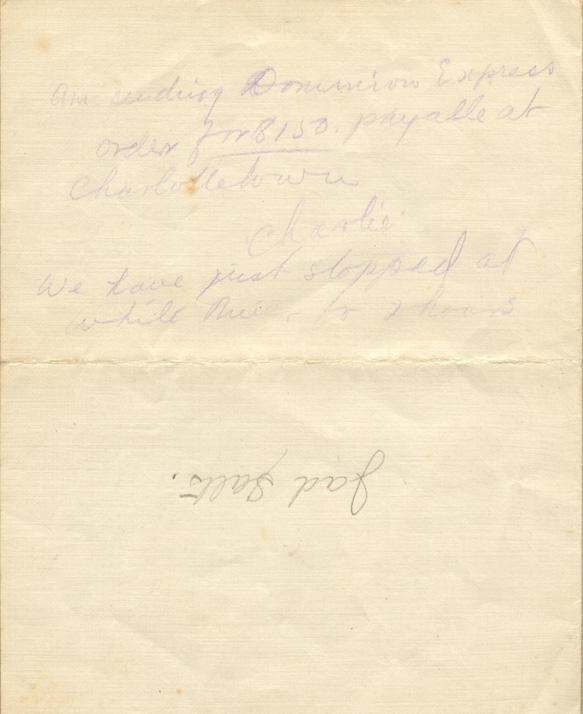 Am sending Dominion Express
order for $150. payable at
Charlottetown
Charlie
We have just stopped at
White River for 2 hours
Jad Salts.